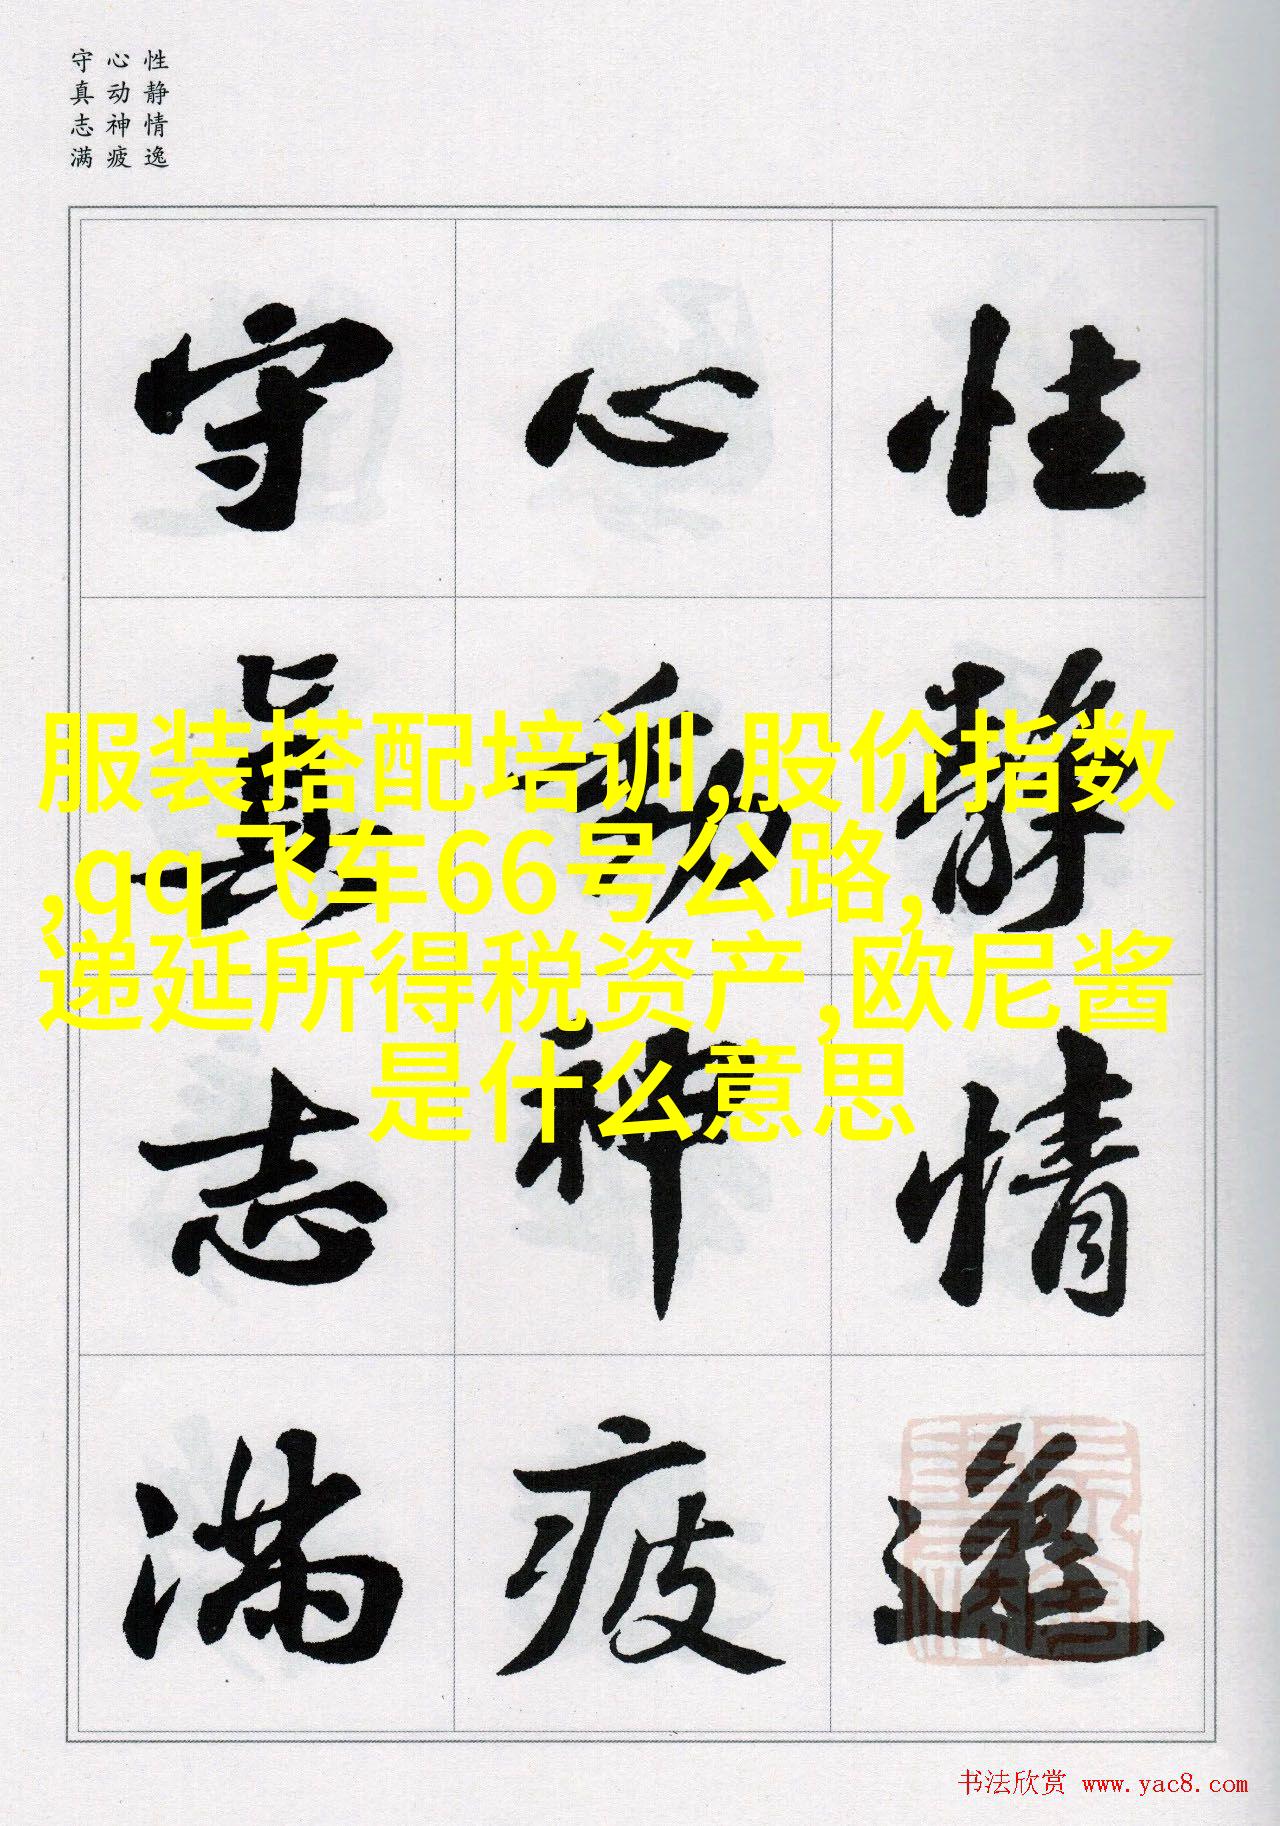 性静情逸
心动神疲
守真志满
性静情逸
心動神疲
守真志满
服装搭配培训,股价指数
,qq飞车66号公路,
递延所得税资产,欧尼酱
是什么意思
书法欣赏 www.yac8.com